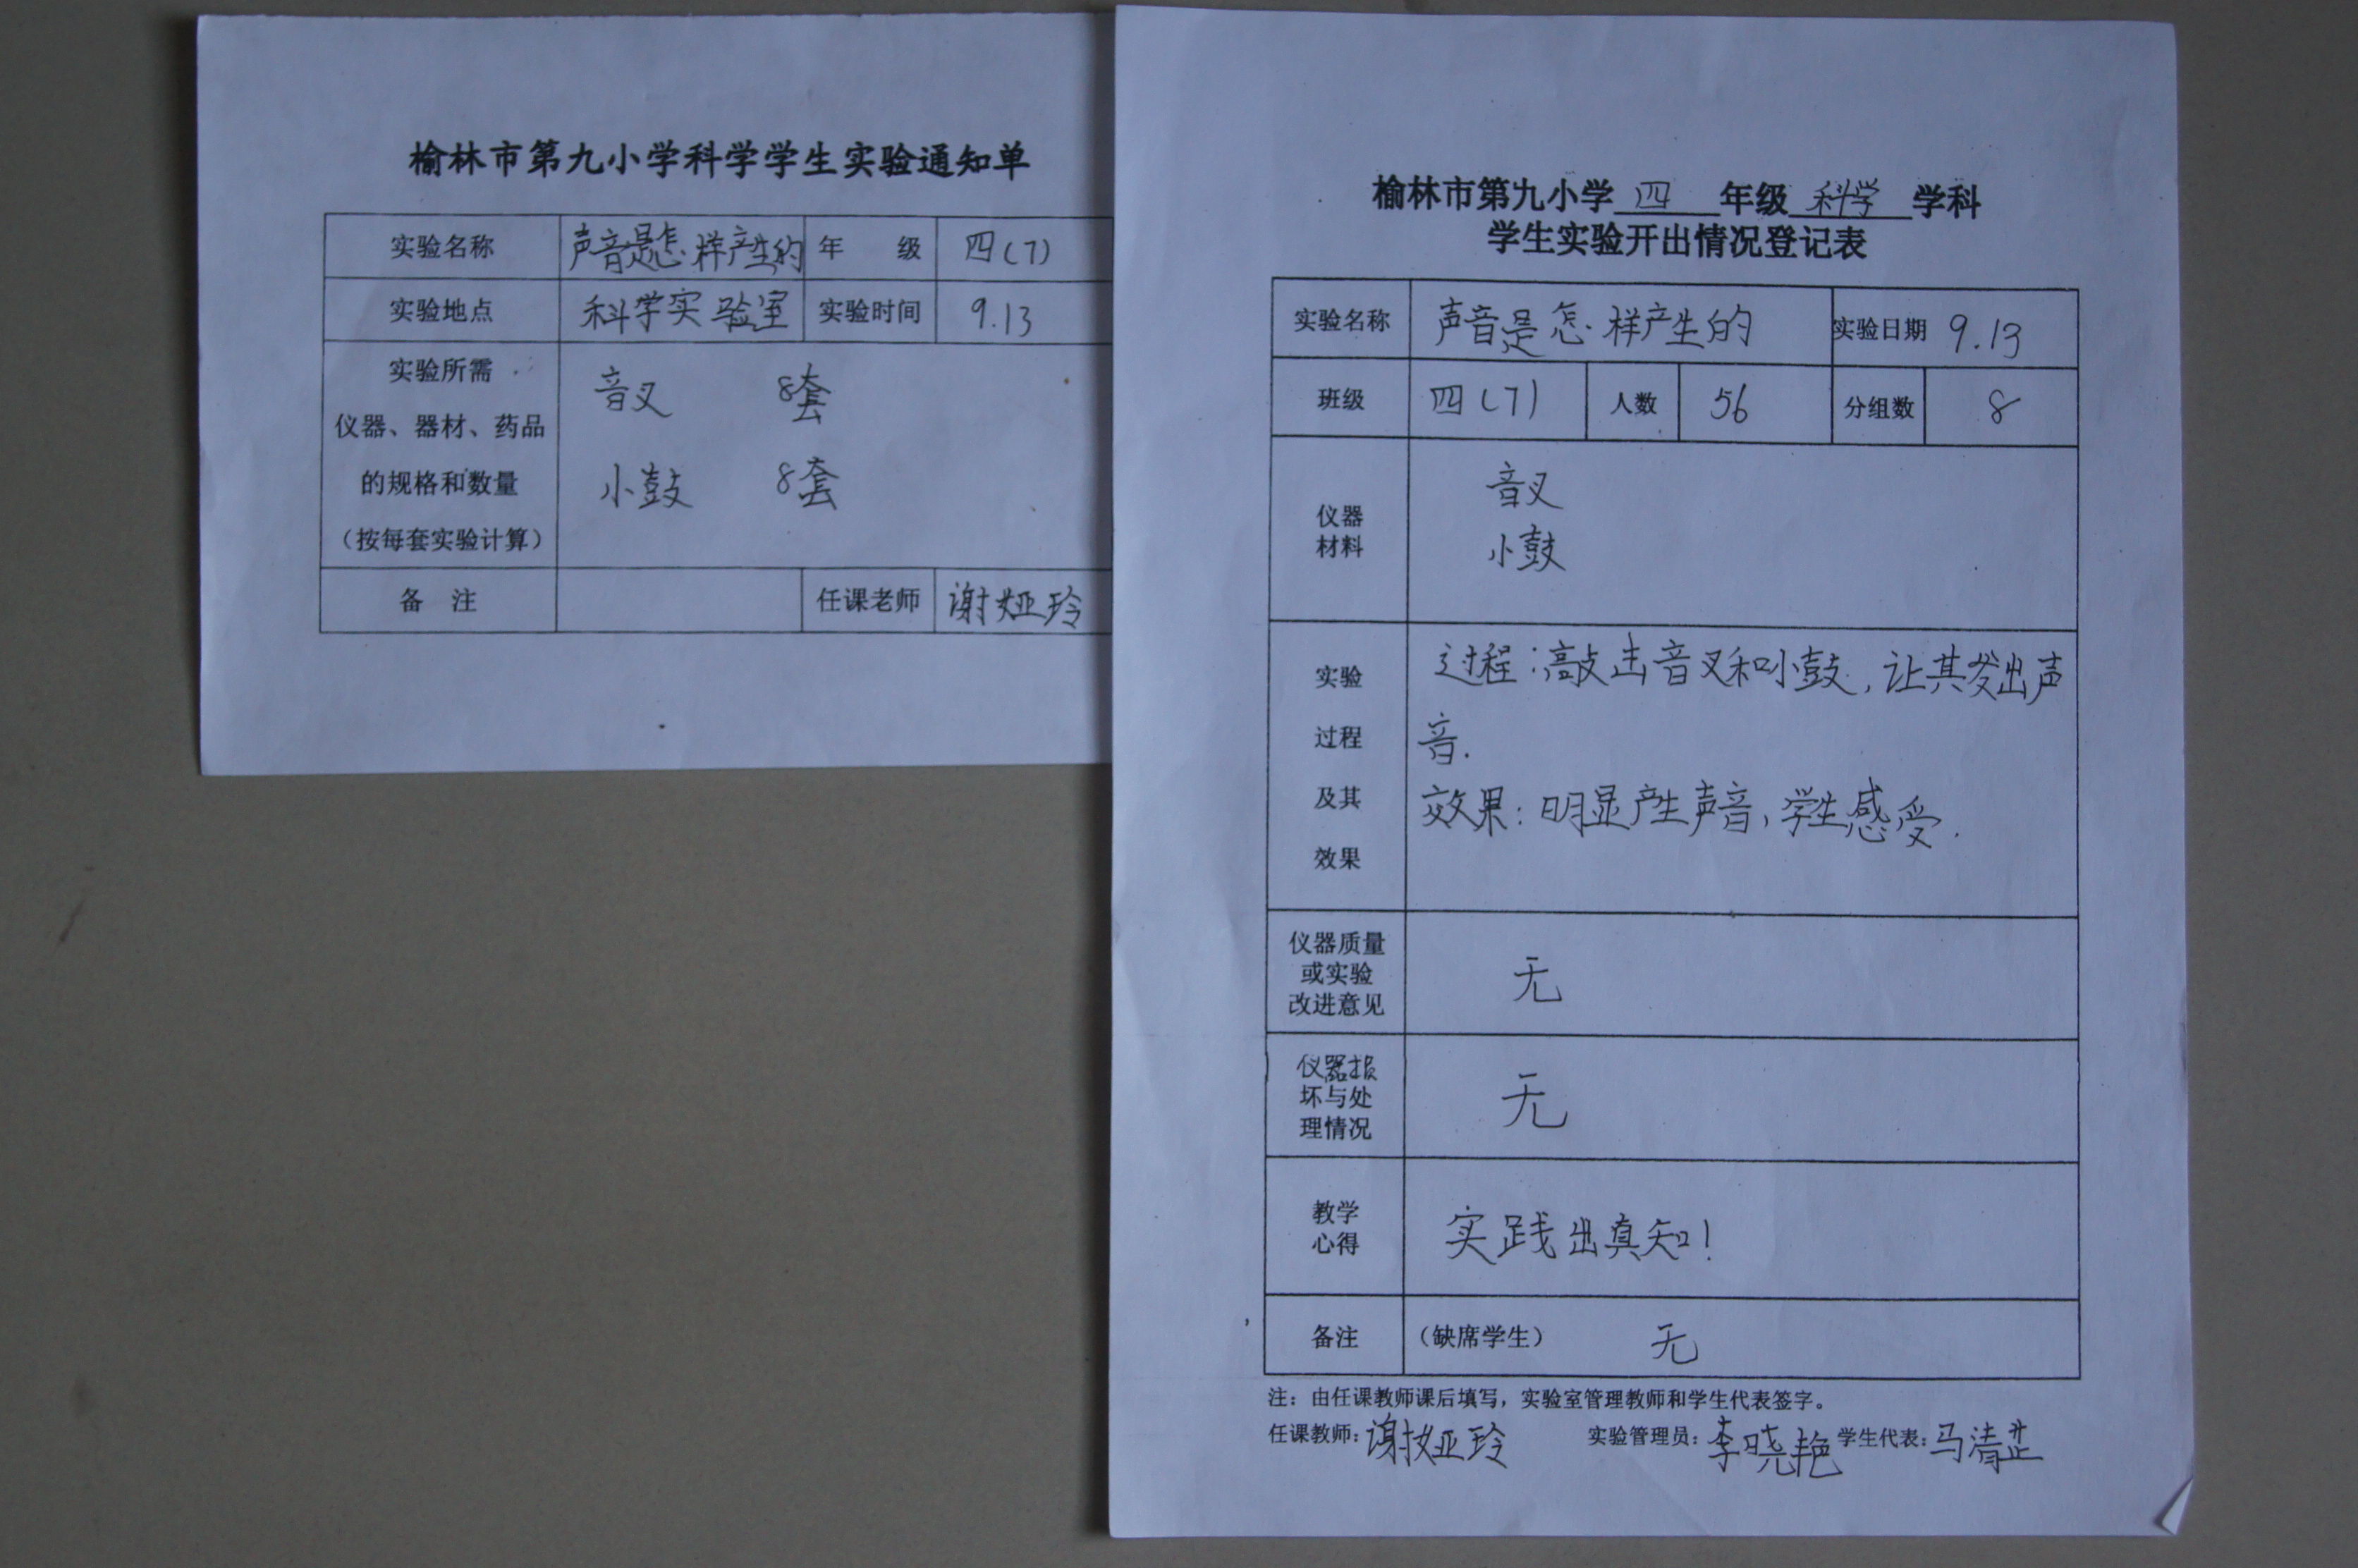 榆林市第九小学科学学生实验通知单
实验名称 声音是怎样产生的 年 级 四(7)
实验地点 科学实验室 实验时间 9.13
实验所需
仪器、器材、药品
的规格和数量
(按每套实验计算)
音叉 8套
小鼓 8套
备 注 任课老师 谢娅玲
榆林市第九小学 四 年级 科学 学科
学生实验开出情况登记表
实验名称 声音是怎样产生的 实验日期 9.13
班级 四(7) 人数 56 分组数 8
仪器
材料
音叉
小鼓
实验
过程
及其
效果
过程:敲击音叉和小鼓,让其发出声
音.
效果:明显产生声音,学生感受.
仪器质量
或实验
改进意见
无
仪器损
坏与处
理情况
无
教学
心得
实践出真知!
备注 (缺席学生) 无
注:由任课教师课后填写,实验室管理教师和学生代表签字。
任课教师:谢娅玲 实验管理员:李晓艳 学生代表:马清芷